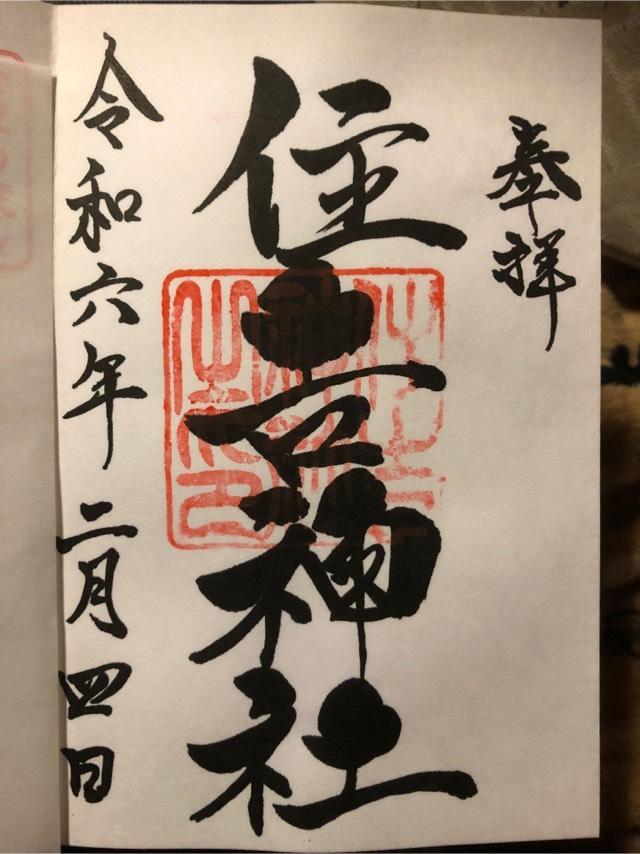 奉拝
住吉神社
令和六年二月四日